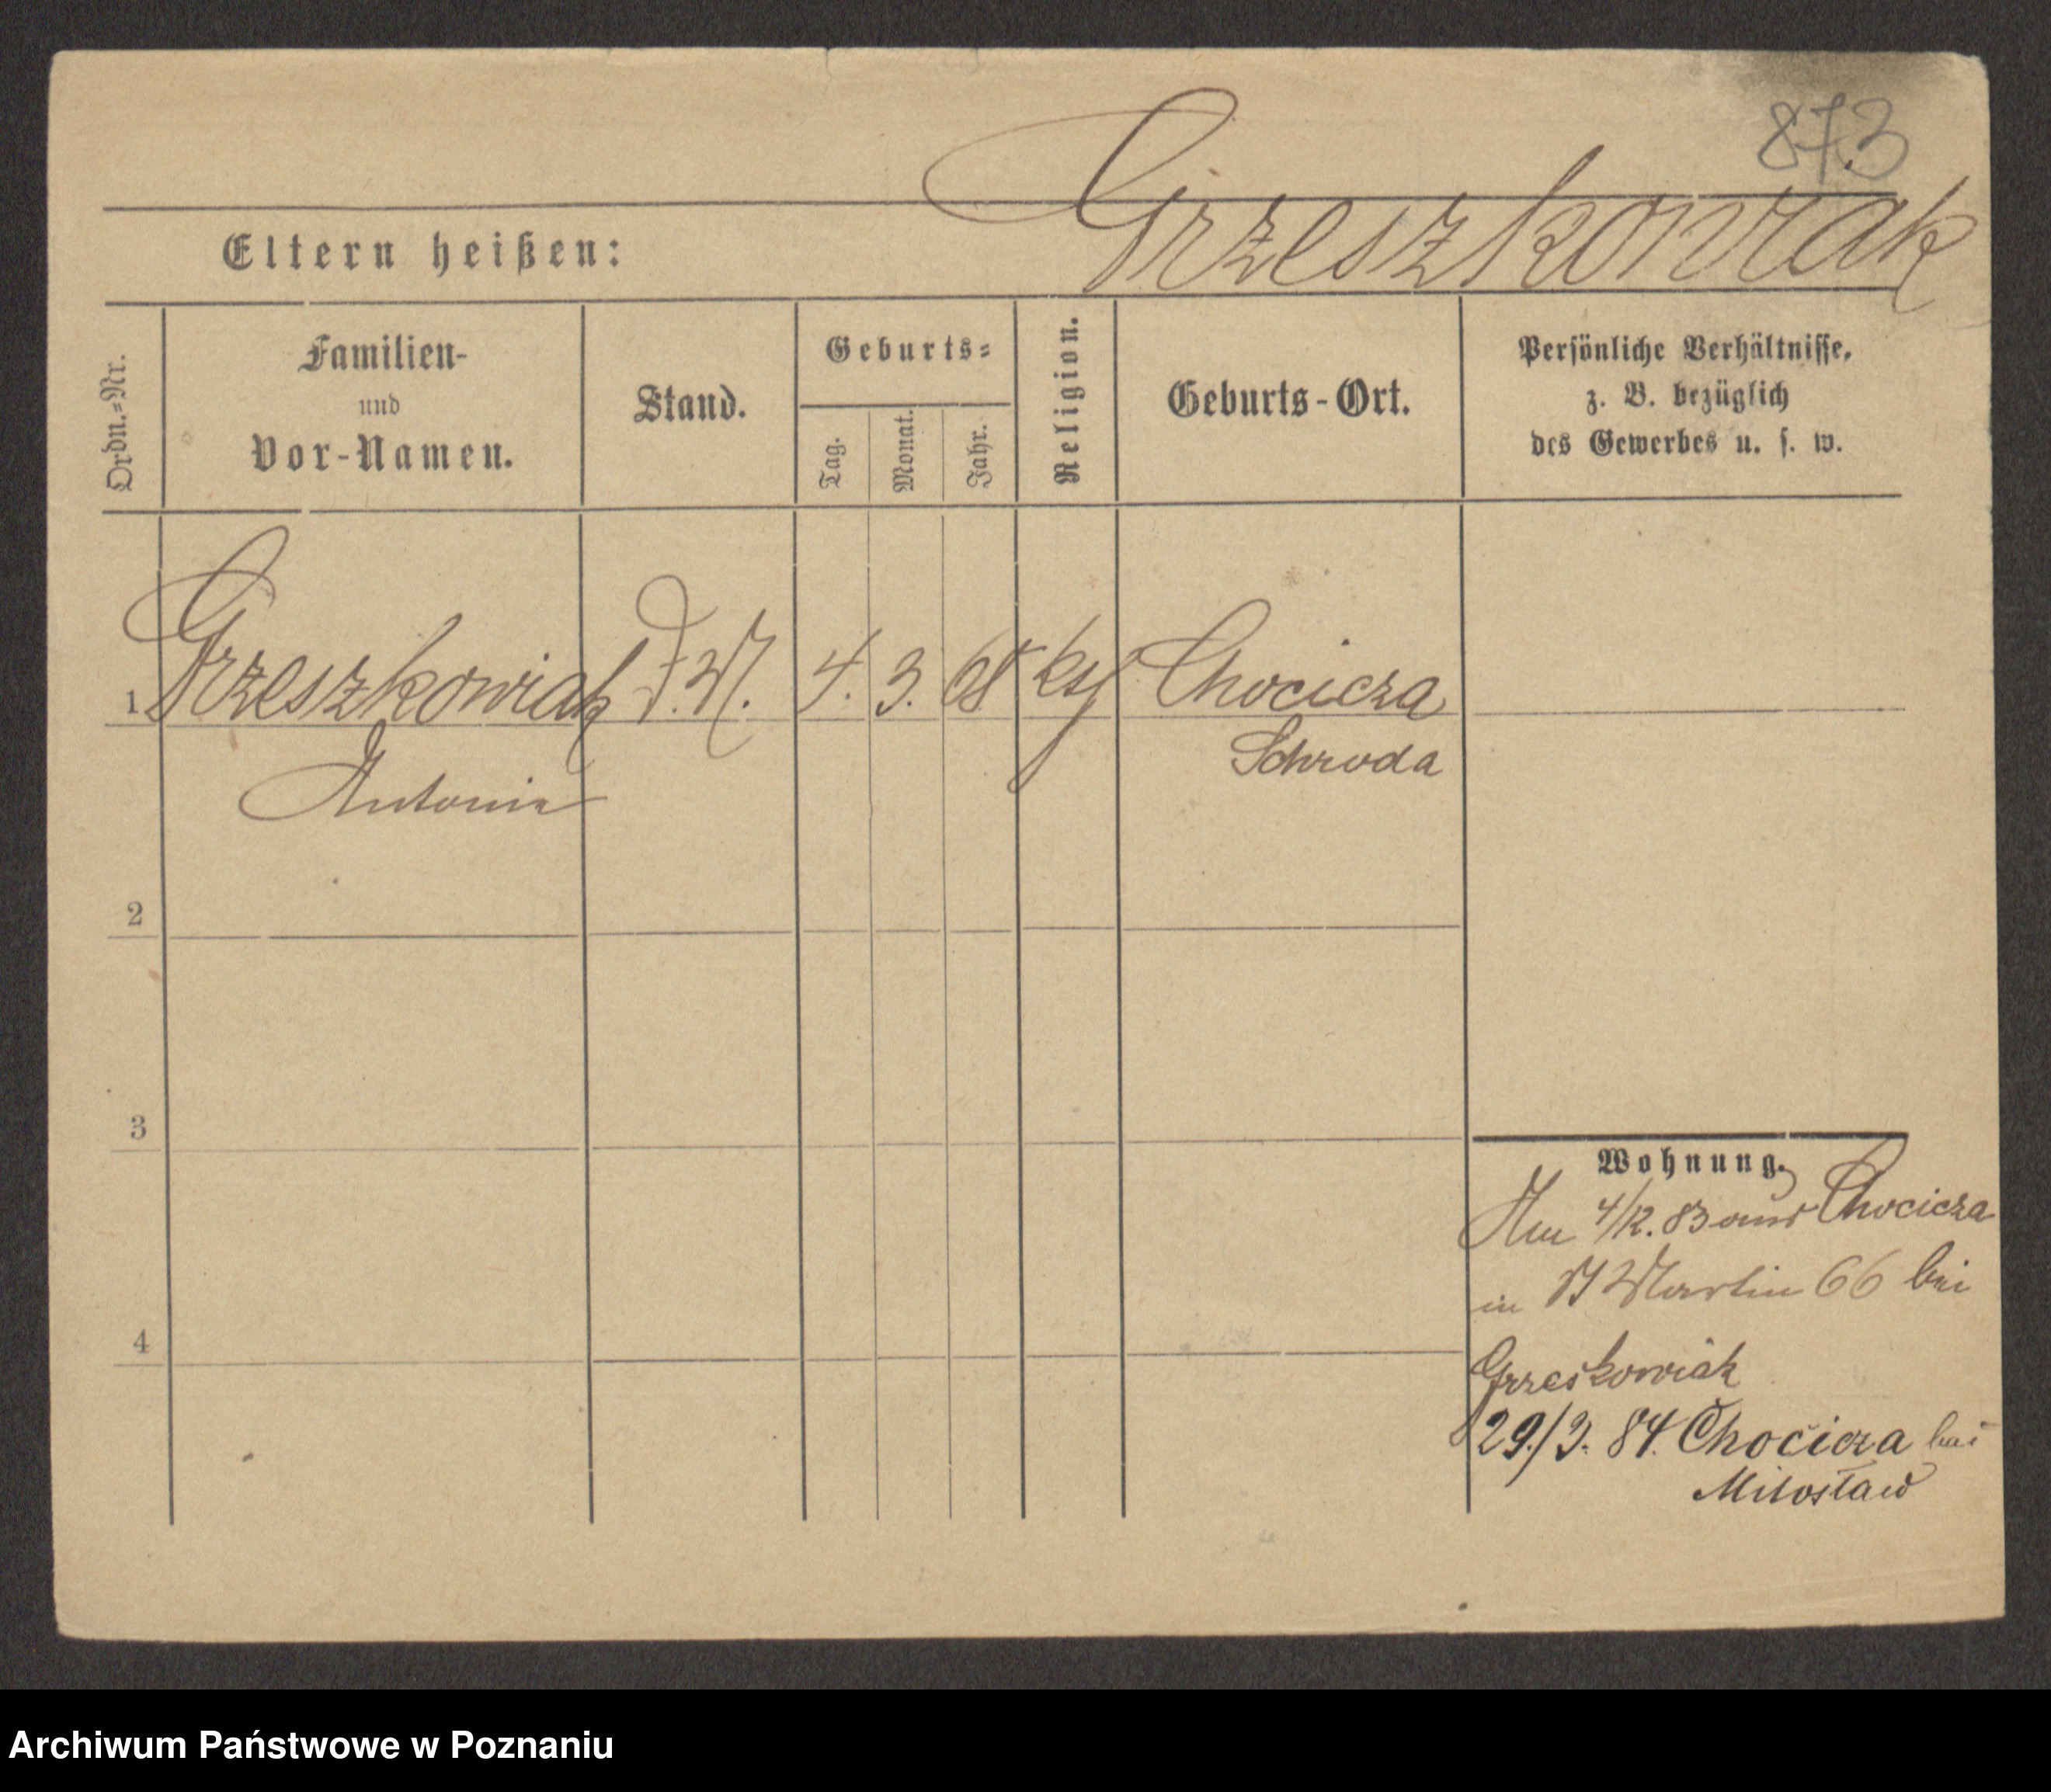 873
Grzeszkowiak
Eltern heißen:
Ordn.=Nr.
Familien-
und
Vor-Namen.
Stand.
Geburts=
Tag.
Monat.
Jahr.
Religion.
Geburts-Ort.
Persönliche Verhältnisse,
z. B. bezüglich
des Gewerbes u. s. w.
1 Grzeszkowiak 4. 3. 68 Chocicza
Antonie Schroda
2
3
4
Wohnung.
Am 4/12. 83 aus Chocicza
in St Martin 66 bei
Grzeskowiak
29./3. 84. Chocicza bei
Miloslaw
Archiwum Państwowe w Poznaniu